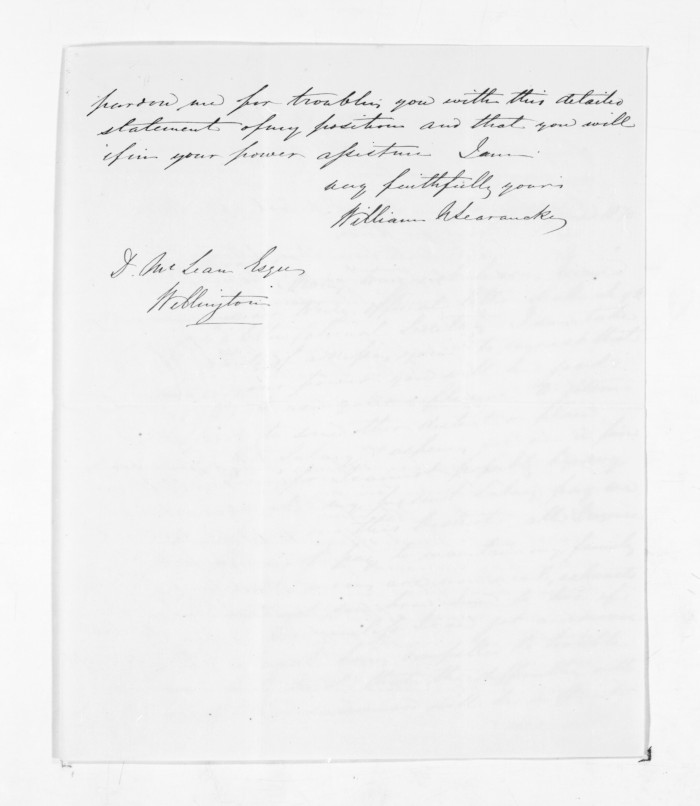 pardon me for troubling you with this detailed
statement of my position and that you will
if in your power assist me I am
very faithfully yours
William N Searancke
D. McLean Esque
Wellington